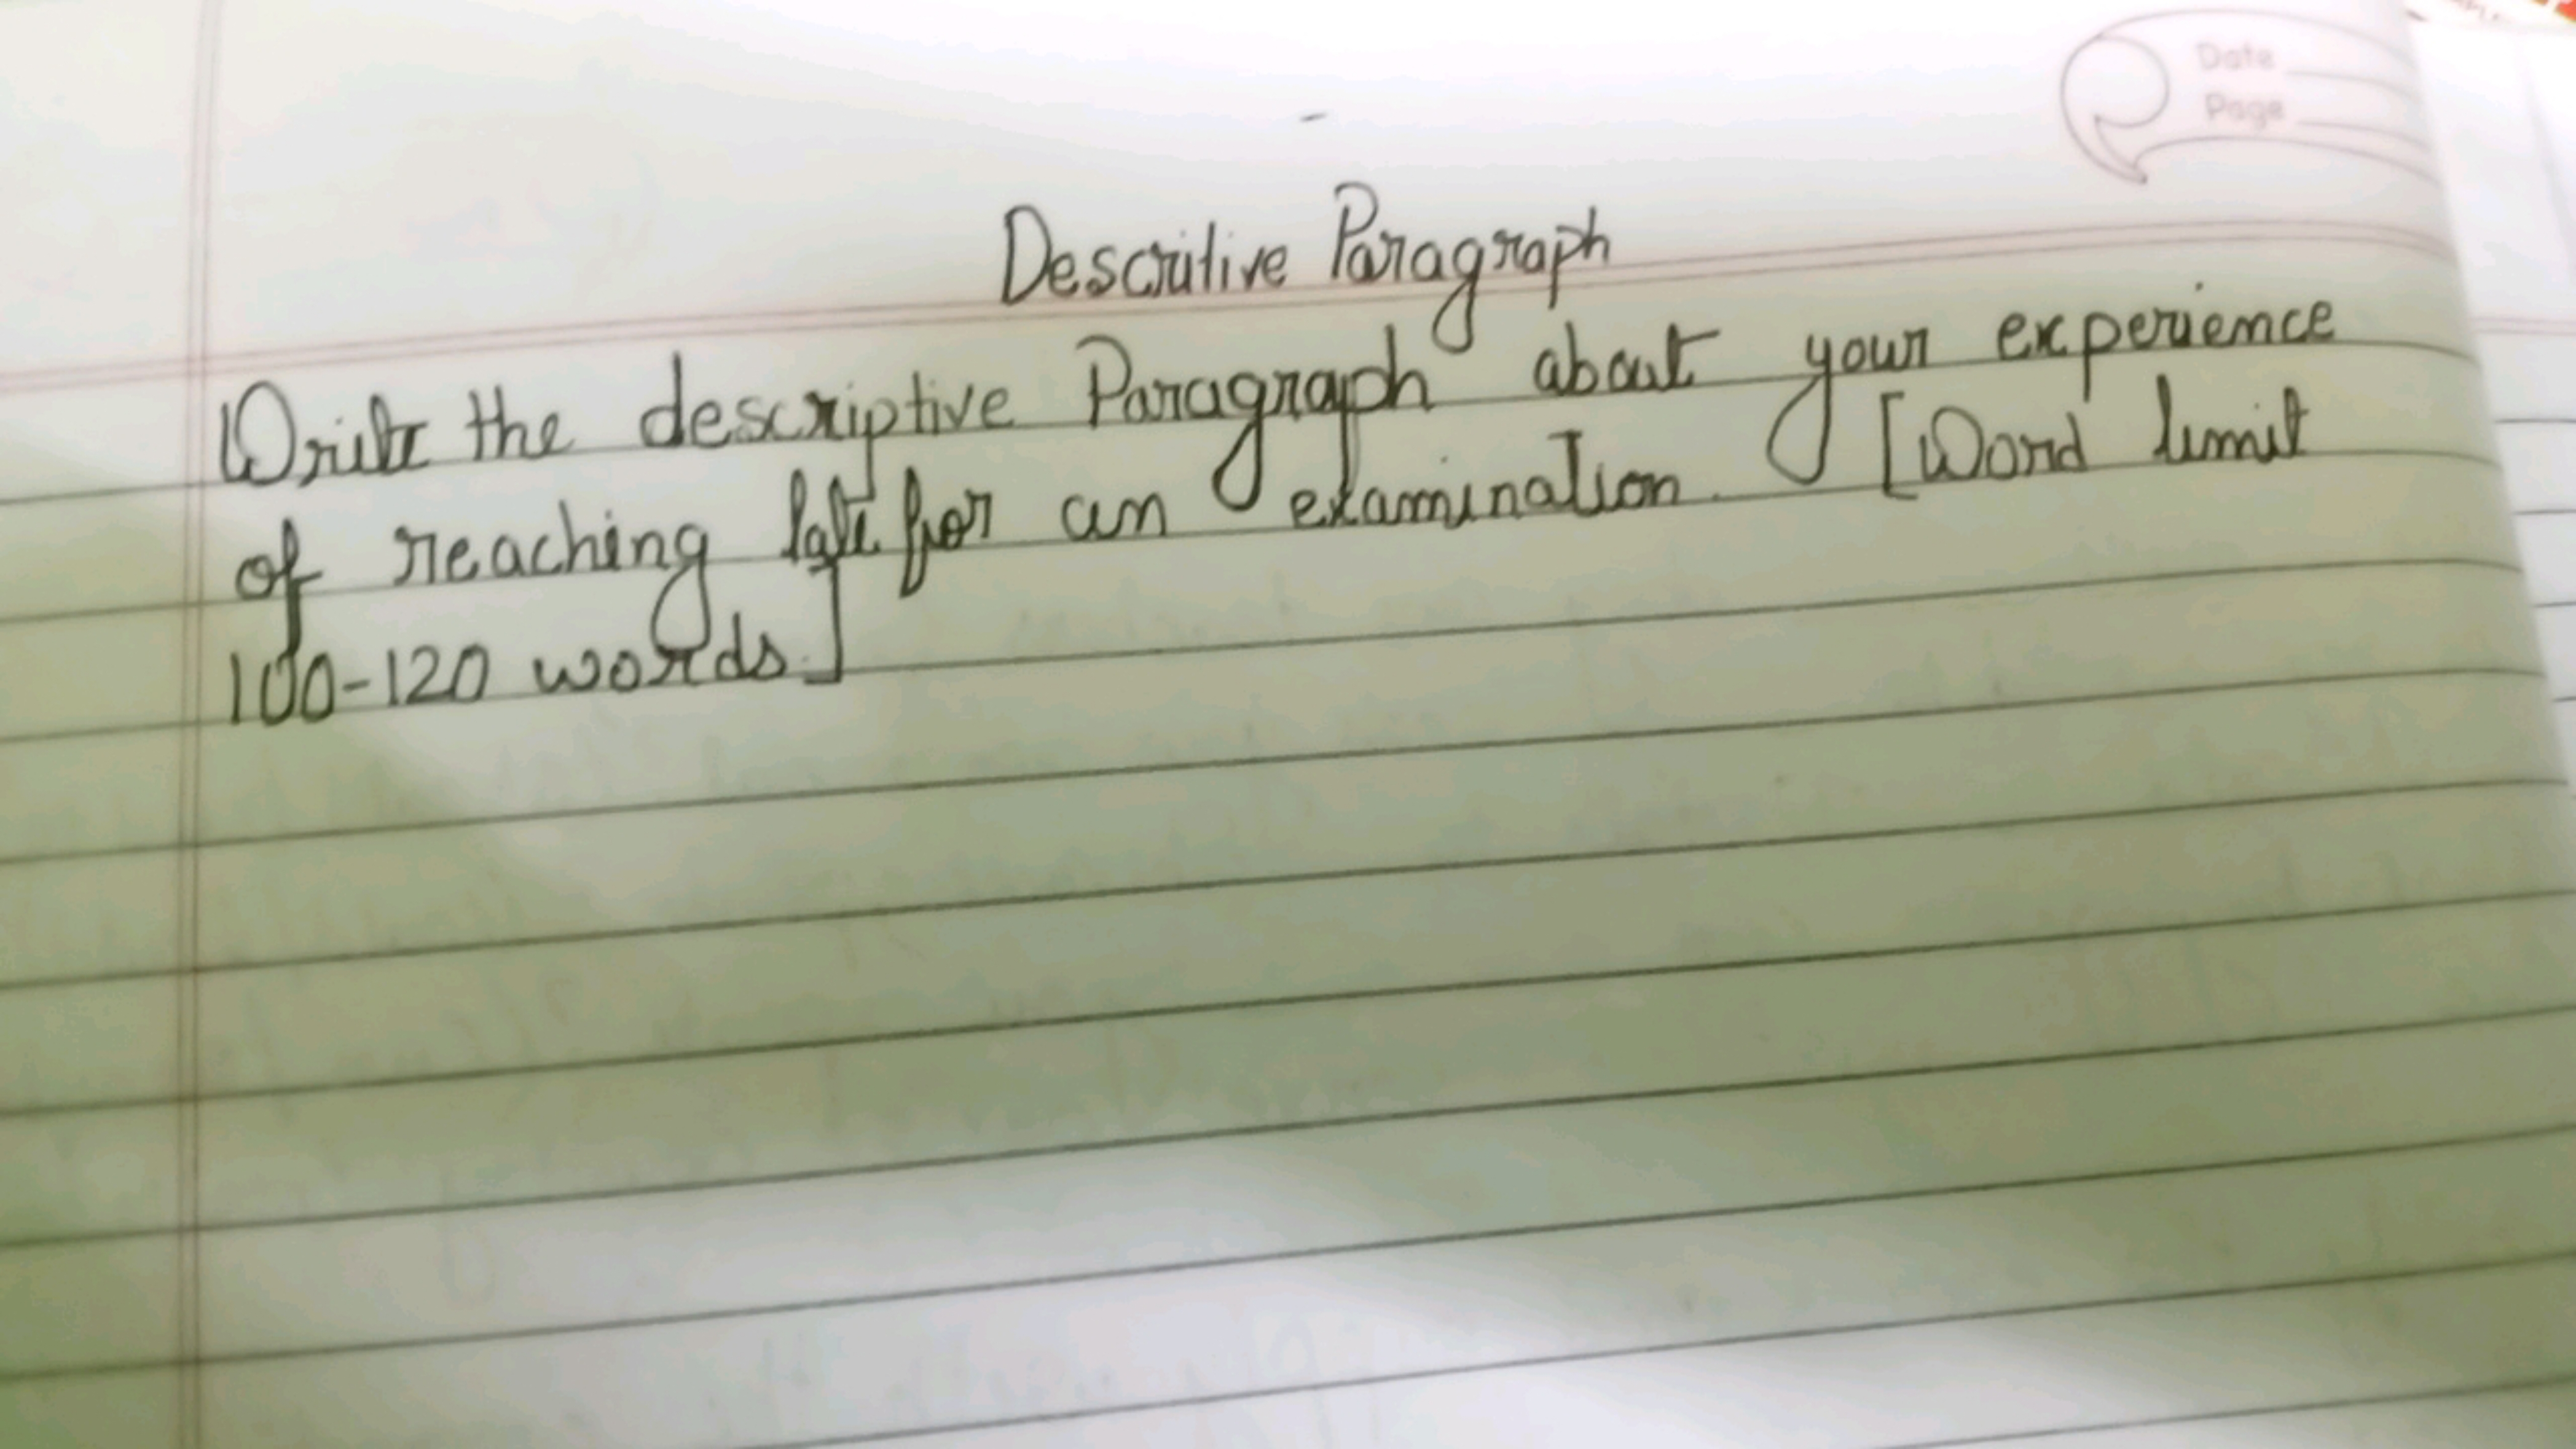 Date
Page
Descritive Paragraph
Write the descriptive Paragraph about your experience
of reaching late for an examination. [Word limit
100-120 words.]